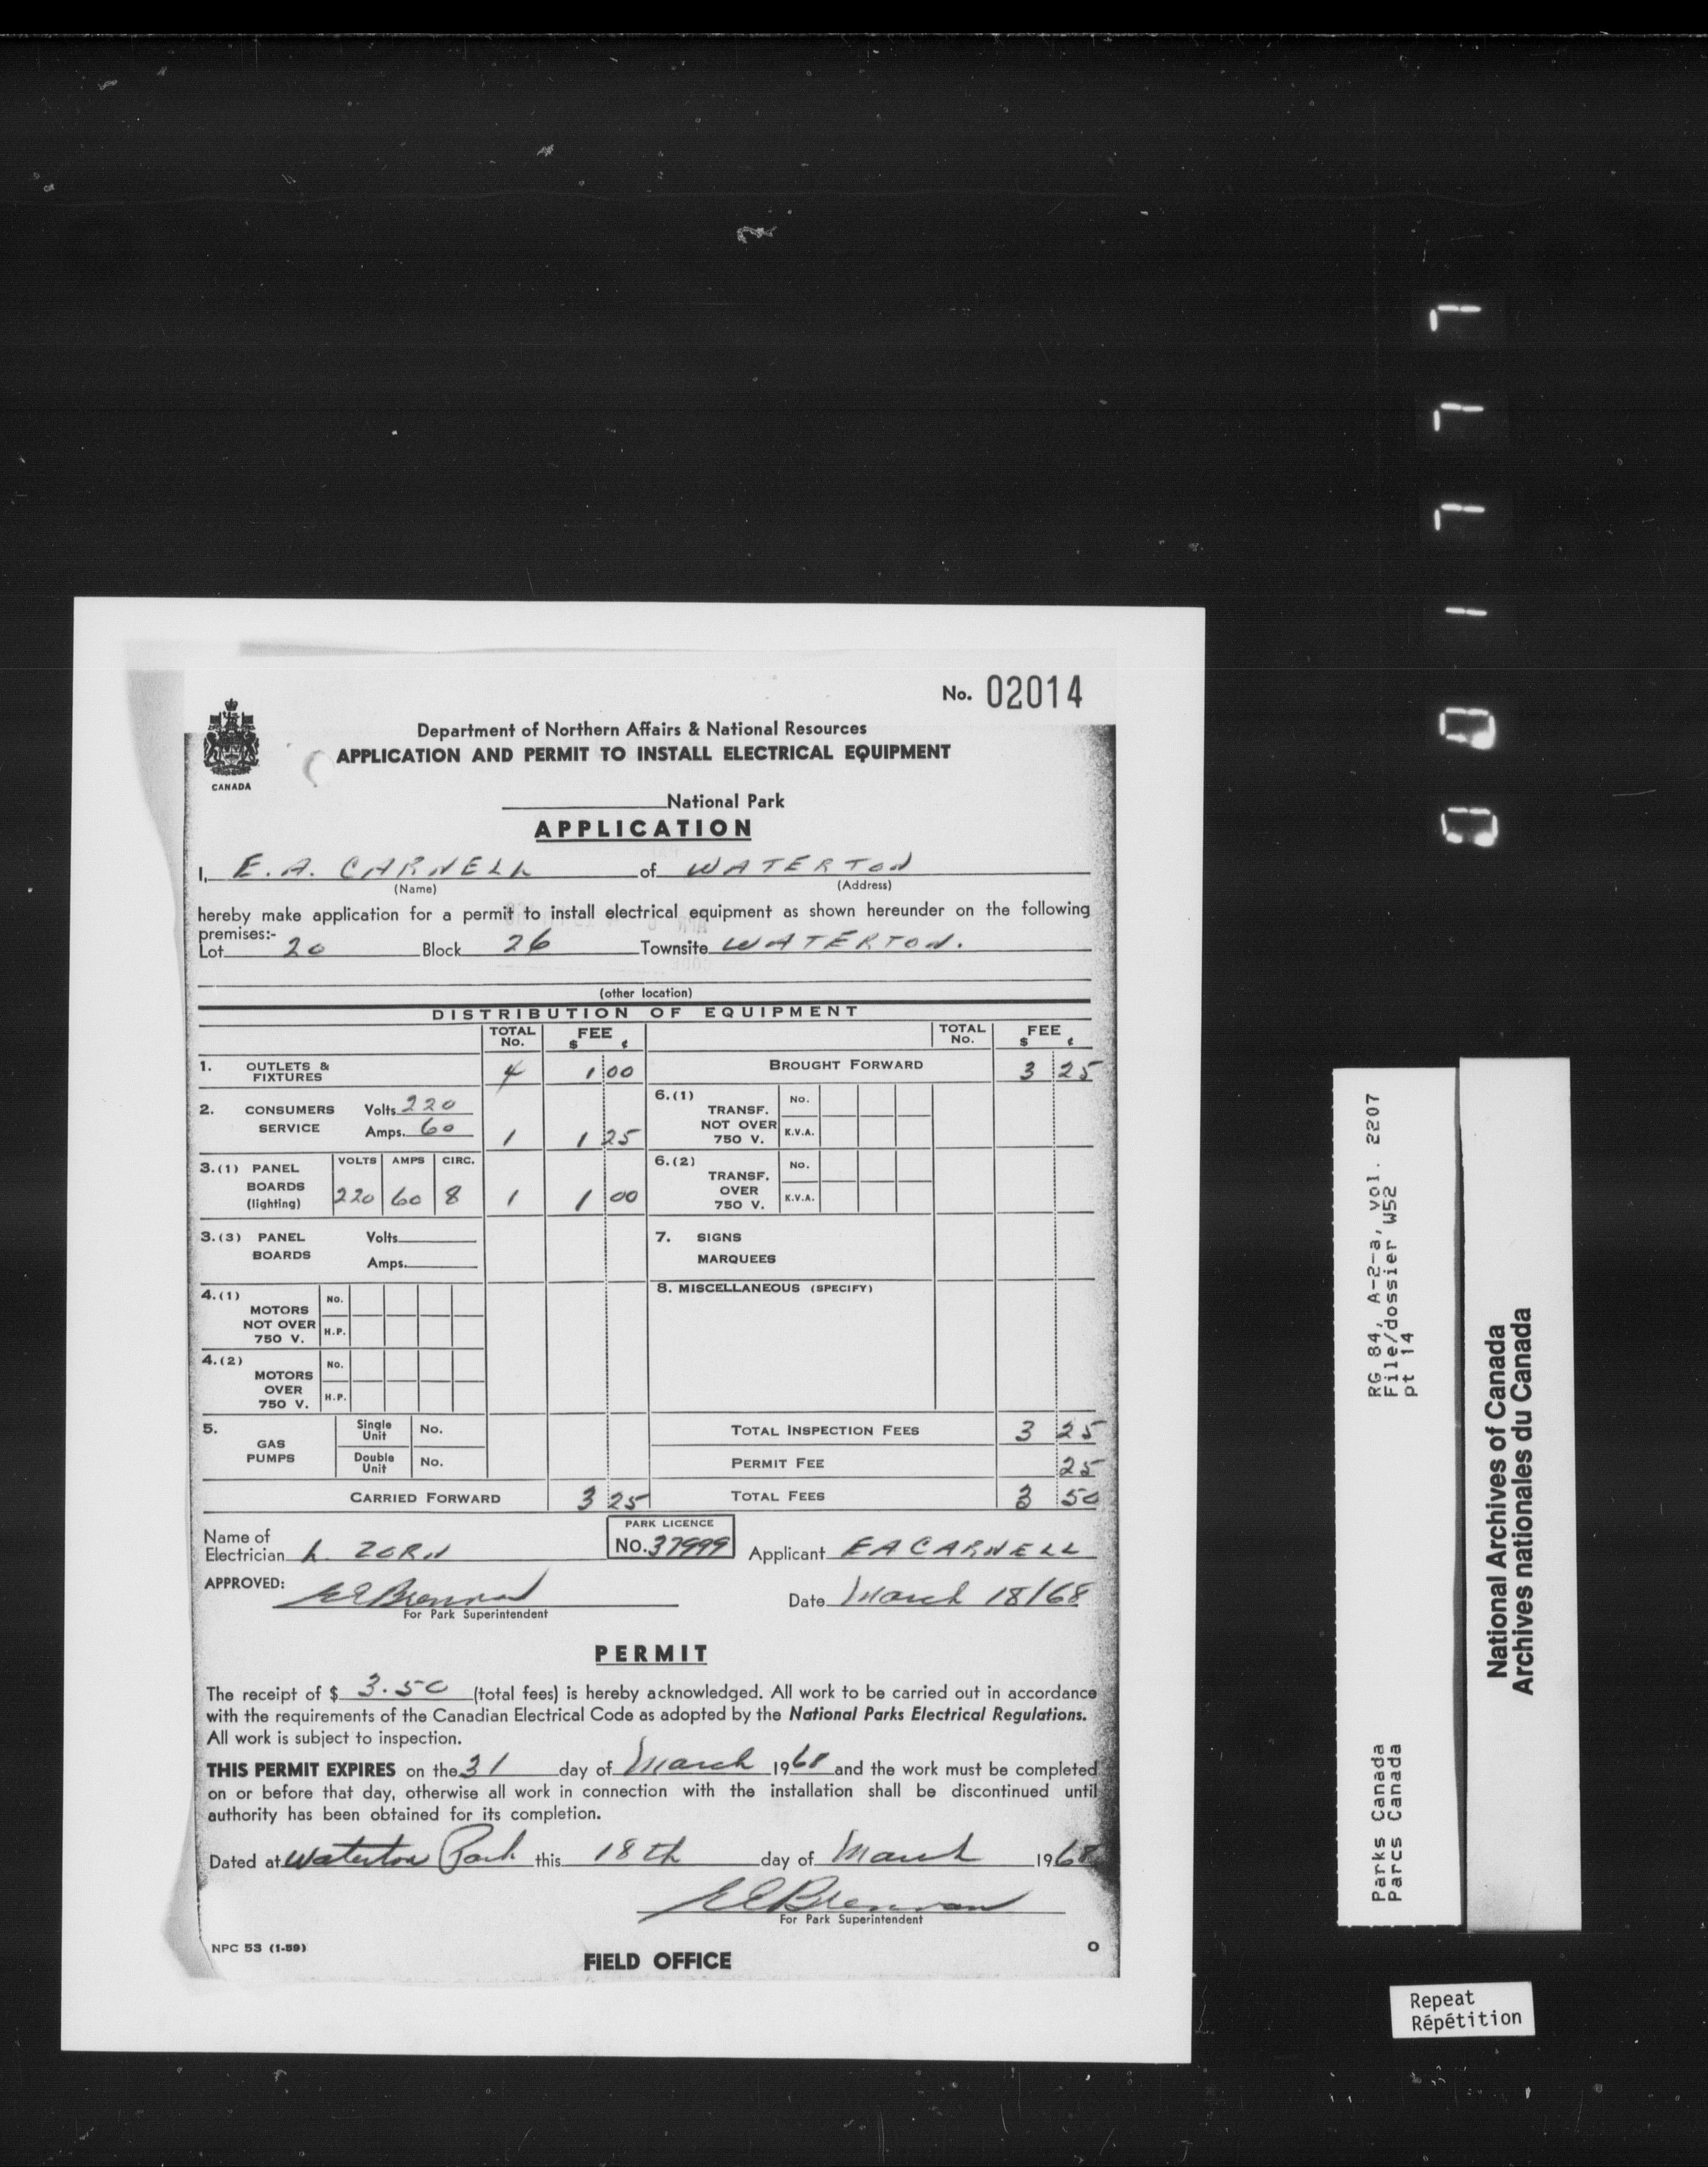 No. 02014
CANADA
Department of Northern Affairs & National Resources
APPLICATION AND PERMIT TO INSTALL ELECTRICAL EQUIPMENT
National Park
APPLICATION
I, E. A. CARNELL of WATERTON
(Name) (Address)
hereby make application for a permit to install electrical equipment as shown hereunder on the following
premises:-
Lot 20 Block 26 Townsite WATERTON.
(other location)
DISTRIBUTION OF EQUIPMENT
TOTAL No. FEE $ ¢ TOTAL No. FEE $ ¢
1. OUTLETS & FIXTURES 4 1 00
BROUGHT FORWARD 3 25
2. CONSUMERS SERVICE Volts 220 Amps. 60 1 1 25
6.(1) TRANSF. NOT OVER 750 V. No. K.V.A.
3.(1) PANEL BOARDS (lighting) VOLTS 220 AMPS 60 CIRC. 8 1 1 00
6.(2) TRANSF. OVER 750 V. No. K.V.A.
3.(3) PANEL BOARDS Volts Amps.
7. SIGNS MARQUEES
4.(1) MOTORS NOT OVER 750 V. No. H.P.
8. MISCELLANEOUS (SPECIFY)
4.(2) MOTORS OVER 750 V. No. H.P.
5. GAS PUMPS Single Unit No. Double Unit No.
TOTAL INSPECTION FEES 3 25
PERMIT FEE 25
CARRIED FORWARD 3 25
TOTAL FEES 3 50
Name of
Electrician L. ZORN PARK LICENCE No. 37999 Applicant E A CARNELL
APPROVED: E E Brennan Date March 18/68
For Park Superintendent
PERMIT
The receipt of $ 3.50 (total fees) is hereby acknowledged. All work to be carried out in accordance
with the requirements of the Canadian Electrical Code as adopted by the National Parks Electrical Regulations.
All work is subject to inspection.
THIS PERMIT EXPIRES on the 31 day of March 1968 and the work must be completed
on or before that day, otherwise all work in connection with the installation shall be discontinued until
authority has been obtained for its completion.
Dated at Waterton Park this 18th day of March 1968
E E Brennan
For Park Superintendent
NPC 53 (1-59)
FIELD OFFICE
O
RG 84, A-2-a, vol. 2207
File/dossier W52
pt 14
Parks Canada
Parcs Canada
National Archives of Canada
Archives nationales du Canada
Repeat
Répétition